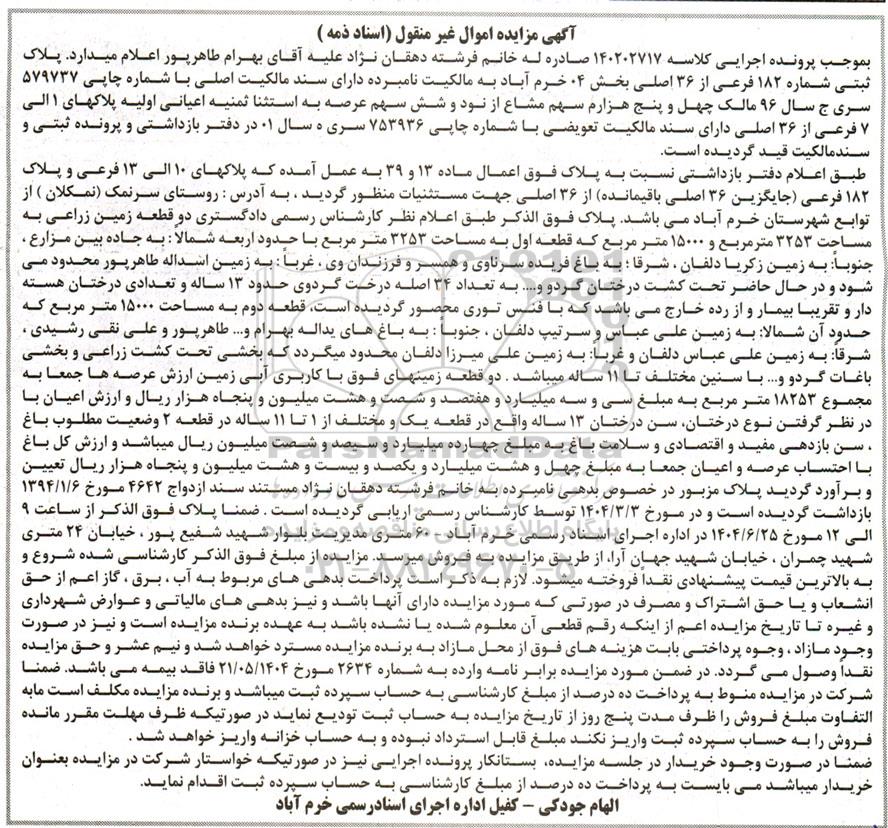 آگهی مزایده اموال غیر منقول (اسناد ذمه )
بموجب پرونده اجرایی کلاسه ۱۴۰۲۰۲۷۱۷ صادره له خانم فرشته دهقان نژاد علیه آقای بهرام طاهرپور اعلام میدارد. پلاک
ثبتی شماره ۱۸۲ فرعی از ۳۶ اصلی بخش ۰۴ خرم آباد به مالکیت نامبرده دارای سند مالکیت اصلی با شماره چاپی ۵۷۹۷۳۷
سری ج سال ۹۶ مالک چهل و پنج هزارم سهم مشاع از نود و شش سهم عرصه به استثنا ثمنیه اعیانی اولیه پلاکهای ۱ الی
۷ فرعی از ۳۶ اصلی دارای سند مالکیت تعویضی با شماره چاپی ۷۵۳۹۳۶ سری ه سال ۰۱ در دفتر بازداشتی و پرونده ثبتی و
سندمالکیت قید گردیده است.
طبق اعلام دفتر بازداشتی نسبت به پلاک فوق اعمال ماده ۱۳ و ۳۹ به عمل آمده که پلاکهای ۱۰ الی ۱۳ فرعی و پلاک
۱۸۲ فرعی (جایگزین ۳۶ اصلی باقیمانده) از ۳۶ اصلی جهت مستثنیات منظور گردید ، به آدرس : روستای سرنمک (نمکلان ) از
توابع شهرستان خرم آباد می باشد. پلاک فوق الذکر طبق اعلام نظر کارشناس رسمی دادگستری دو قطعه زمین زراعی به
مساحت ۳۲۵۳ مترمربع و ۱۵۰۰۰ متر مربع که قطعه اول به مساحت ۳۲۵۳ متر مربع با حدود اربعه شمالاً : به جاده بین مزارع ،
جنوباً: به زمین زکریا دلفان ، شرقا : به باغ فریده میرناوی و همسر و فرزندان وی ، غرباً : به زمین اشداله طاهرپور محدود می
شود و در حال حاضر تحت کشت درختان گردو و... به تعداد ۳۴ اصله درخت گردوی حدود ۱۳ ساله و تعدادی درختان هسته
دار و تقریبا بیمار و از رده خارج می باشد که با فنس توری محصور گردیده است، قطعه دوم به مساحت ۱۵۰۰۰ متر مربع که
حدود آن شمالا: به زمین علی عباس و سرتیپ دلفان ، جنوباً : به باغ های یداله بهرام و... طاهرپور و علی نقی رشیدی ،
شرقاً: به زمین علی عباس دلفان و غرباً: به زمین علی میرزا دلفان محدود میگردد که بخشی تحت کشت زراعی و بخشی
باغات گردو و... با سنین مختلف تا ۱۱ ساله میباشد . دو قطعه زمینهای فوق با کاربری آبی زمین ارزش عرصه ها جمعا به
مجموع ۱۸۲۵۳ متر مربع به مبلغ سی و سه میلیارد و هفتصد و شصت و هشت میلیون و پنجاه هزار ریال و ارزش اعیان با
در نظر گرفتن نوع درختان، سن درختان ۱۳ ساله واقع در قطعه یک و مختلف از ۱ تا ۱۱ ساله در قطعه ۲ وضعیت مطلوب باغ
، سن بازدهی مفید و اقتصادی و سلامت باغ به مبلغ چهارده میلیارد و سیصد و شصت میلیون ریال میباشد و ارزش کل باغ
با احتساب عرصه و اعیان جمعا به مبلغ چهل و هشت میلیارد و یکصد و بیست و هشت میلیون و پنجاه هزار ریال تعیین
و برآورد گردید پلاک مزبور در خصوص بدهی نامبرده به خانم فرشته دهقان نژاد مستند سند ازدواج ۴۶۴۲ مورخ ۱۳۹۴/۱/۶
بازداشت گردیده است و در مورخ ۱۴۰۴/۳/۳ توسط کارشناس رسمی ارزیابی گردیده است . ضمنا پلاک فوق الذکر از ساعت ۹
الی ۱۲ مورخ ۱۴۰۴/۶/۲۵ در اداره اجرای اسناد رسمی خرم آباد ، ۶۰ متری مدیریت بلوار شهید شفیع پور ، خیابان ۲۴ متری
شهید چمران ، خیابان شهید جهان آرا، از طریق مزایده به فروش میرسد. مزایده از مبلغ فوق الذکر کارشناسی شده شروع و
به بالاترین قیمت پیشنهادی نقداً فروخته میشود. لازم به ذکر است پرداخت بدهی های مربوط به آب ، برق ، گاز اعم از حق
انشعاب و یا حق اشتراک و مصرف در صورتی که مورد مزایده دارای آنها باشد و نیز بدهی های مالیاتی و عوارض شهرداری
و غیره تا تاریخ مزایده اعم از اینکه رقم قطعی آن معلوم شده یا نشده باشد به عهده برنده مزایده است و نیز در صورت
وجود مازاد ، وجوه پرداختی بابت هزینه های فوق از محل مازاد به برنده مزایده مسترد خواهد شد و نیم عشر و حق مزایده
نقداً وصول می گردد. در ضمن مورد مزایده برابر نامه وارده به شماره ۲۶۳۴ مورخ ۲۱/۰۵/۱۴۰۴ فاقد بیمه می باشد. ضمنا
شرکت در مزایده منوط به پرداخت ده درصد از مبلغ کارشناسی به حساب سپرده ثبت میباشد و برنده مزایده مکلف است مابه
التفاوت مبلغ فروش را ظرف مدت پنج روز از تاریخ مزایده به حساب ثبت تودیع نماید در صورتیکه ظرف مهلت مقرر مانده
فروش را به حساب سپرده ثبت واریز نکند مبلغ قابل استرداد نبوده و به حساب خزانه واریز خواهد شد .
ضمنا در صورت وجود خریدار در جلسه مزایده، بستانکار پرونده اجرایی نیز در صورتیکه خواستار شرکت در مزایده بعنوان
خریدار میباشد می بایست به پرداخت ده درصد از مبلغ کارشناسی به حساب سپرده ثبت اقدام نماید.
الهام جودکی - کفیل اداره اجرای اسنادرسمی خرم آباد
ParsNamadData
پایگاه اطلاع رسانی مناقصه و مزایده
۰۲۱-۸۸۳۴۹۶۷۰-۵